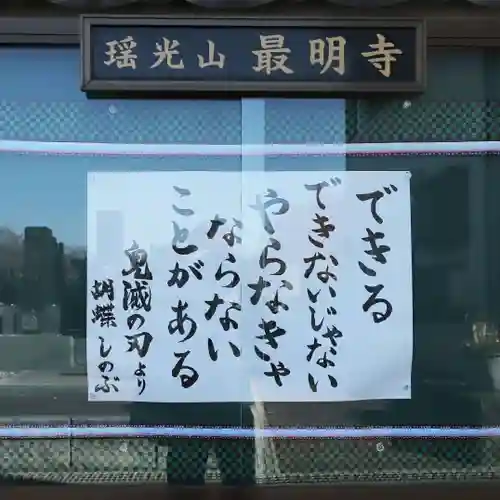 瑶光山 最明寺
できる
できないじゃない
やらなきゃ
ならない
ことがある
鬼滅の刃より
胡蝶しのぶ